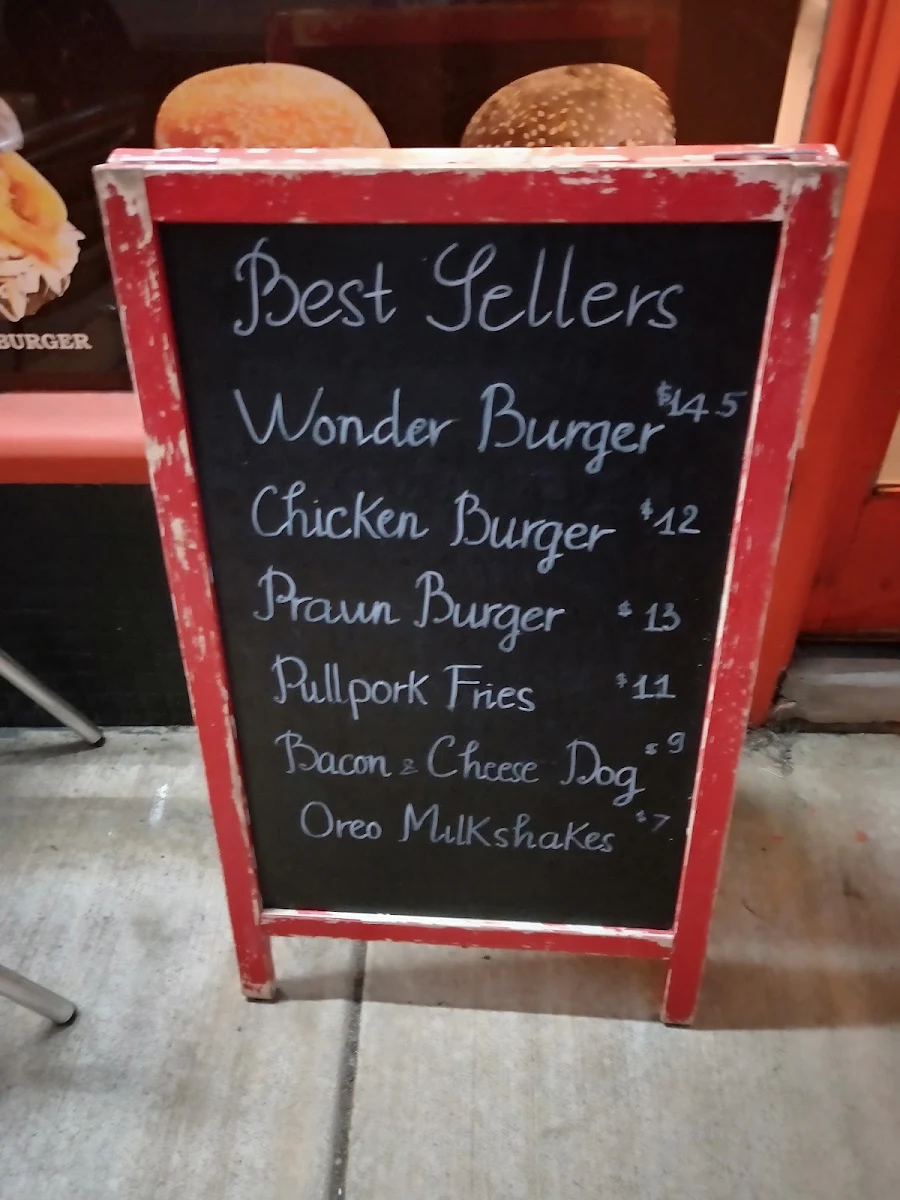 BURGER
Best Sellers
Wonder Burger $14.5
Chicken Burger $12
Prawn Burger $13
Pullpork Fries $11
Bacon & Cheese Dog $9
Oreo Milkshakes $7